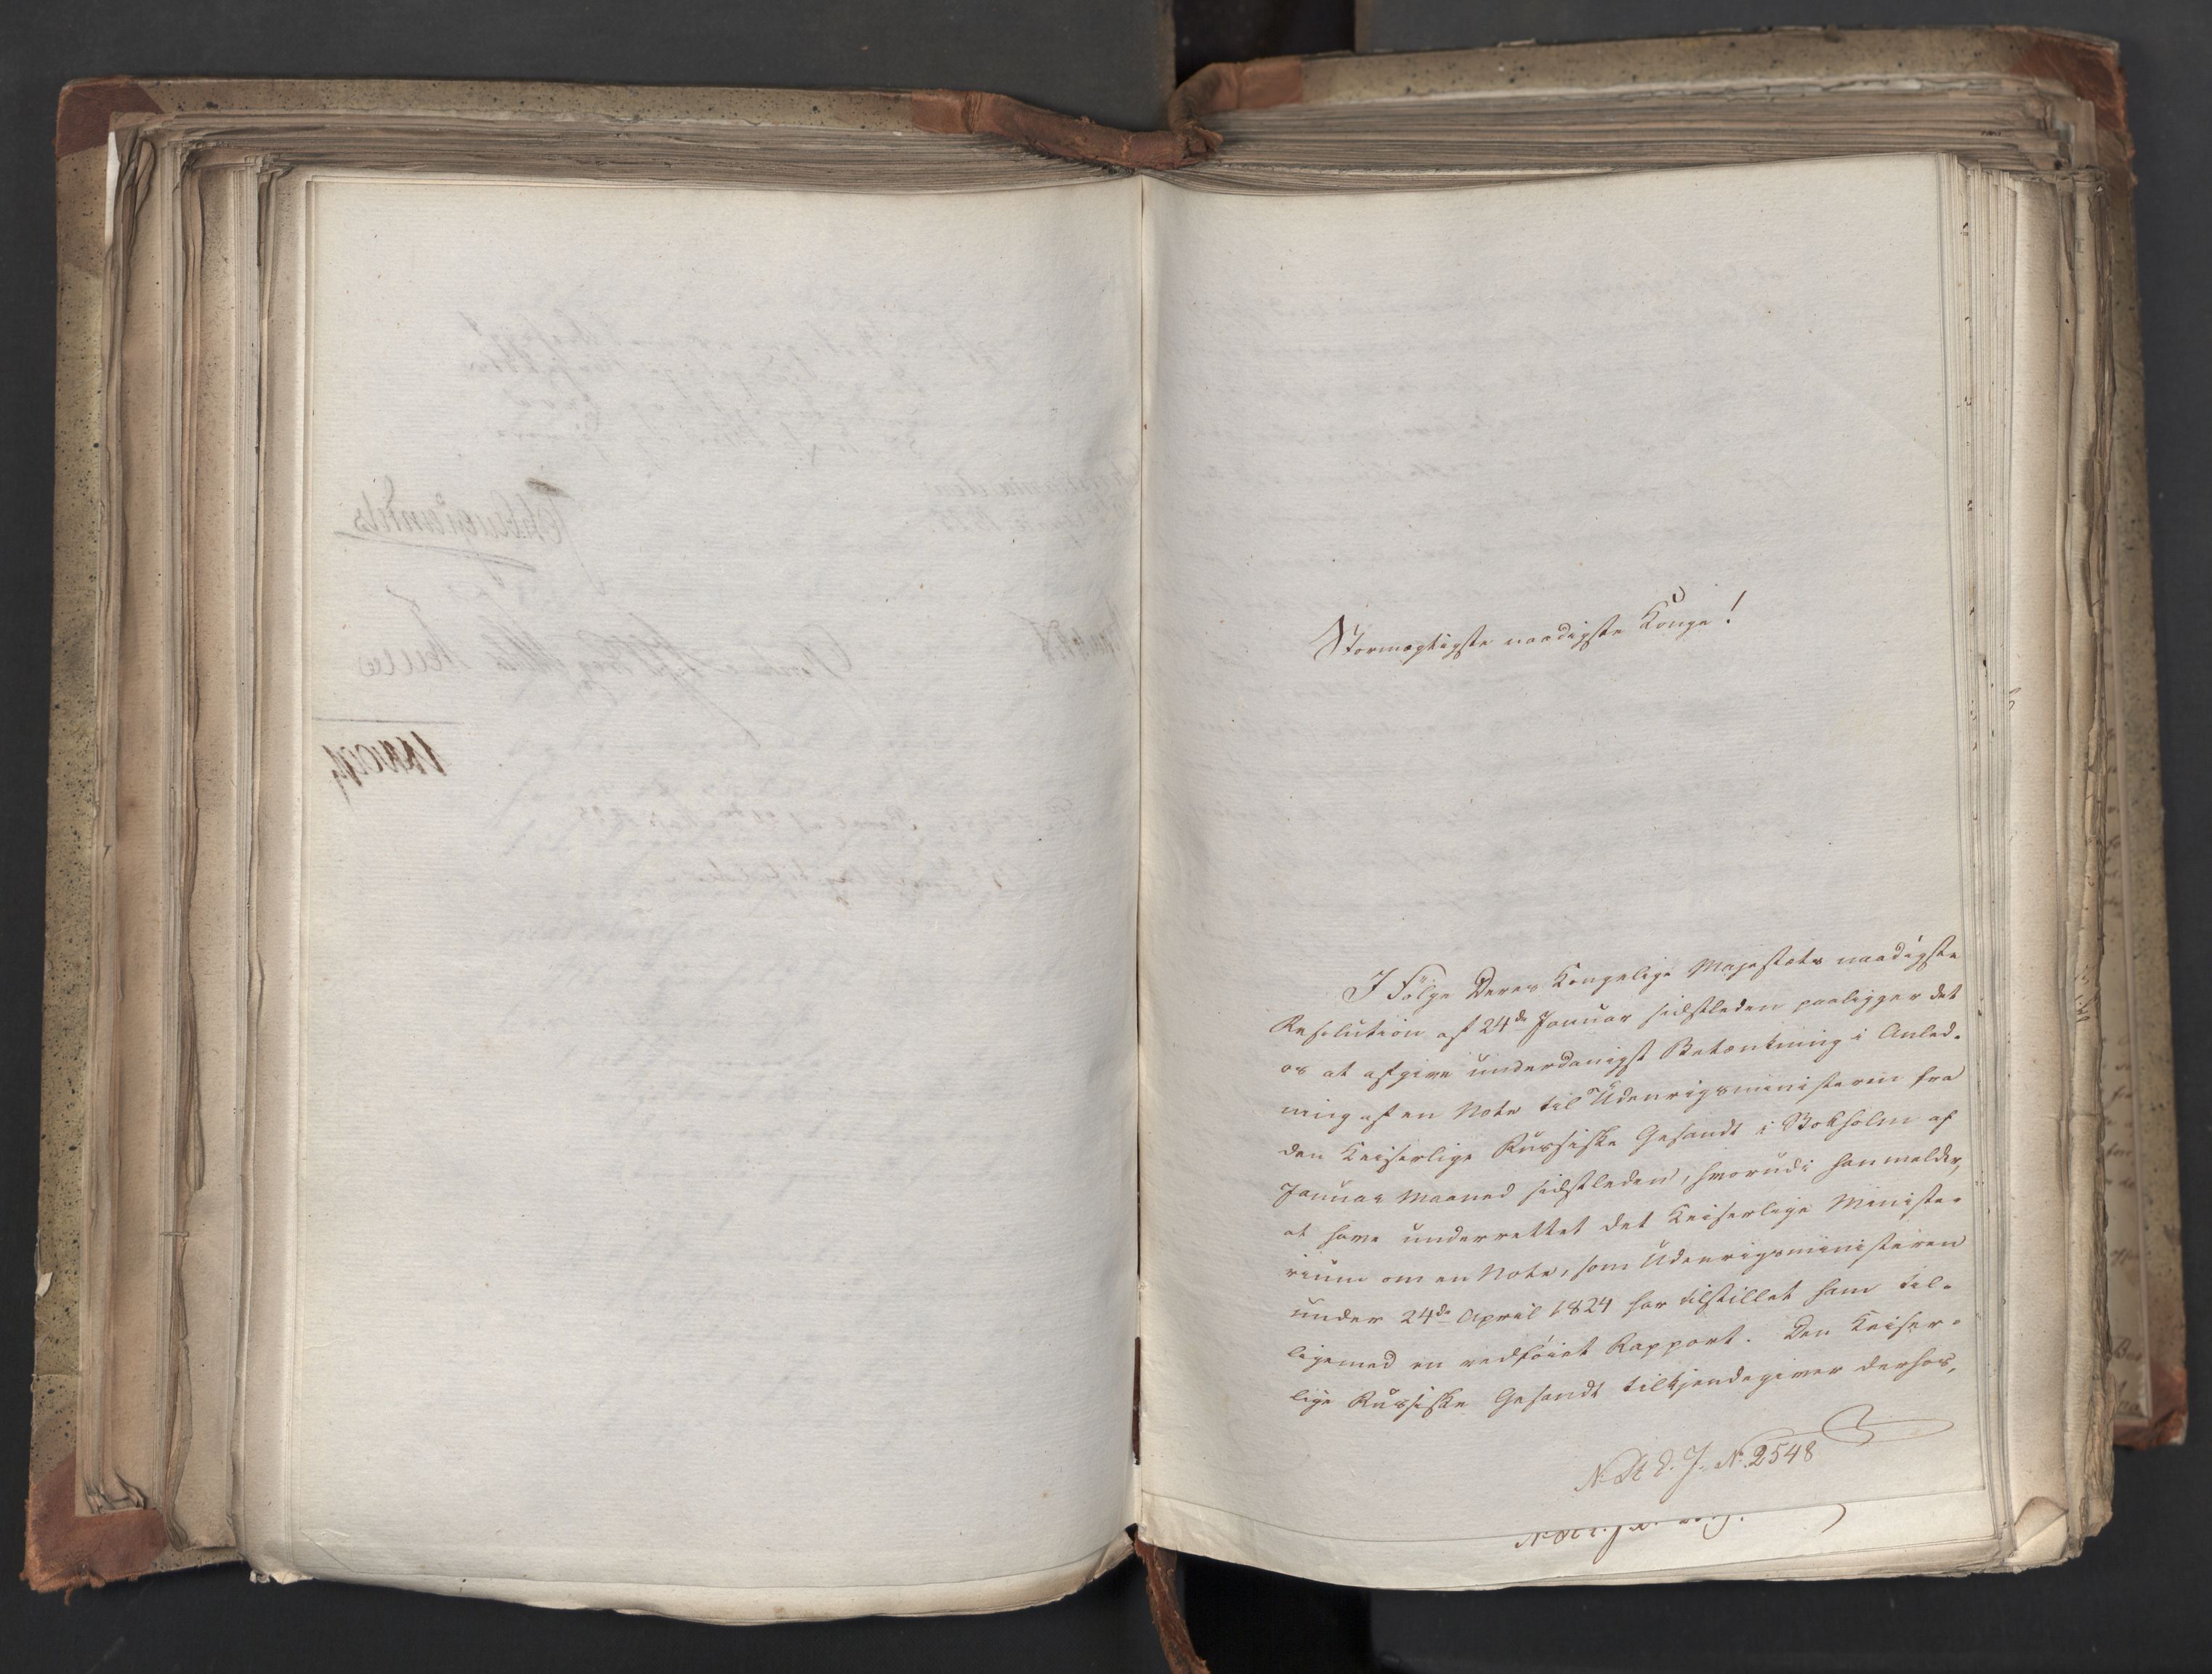 Stormægtigste naadigste Konge!
I Følge Deres Kongelige Majestæts naadigste
Resolution af 24de Januar sidstleden paaligger det
os at afgive underdanigst Betænkning i Anled-
ning af en Note til Udenrigsministeren fra
den Keiserlige Russiske Gesandt i Stokholm af
Januar Maaned sidstleden, hvorudi han melder,
at have underrettet det Keiserlige Ministe-
rium om en Note, som Udenrigsministeren
under 24de April 1824 har tilstillet ham til-
ligemed en vedføiet Rapport. Den Keiser-
lige Russiske Gesandt tilkjendegiver derhos,
N. St. S. J. No. 2548